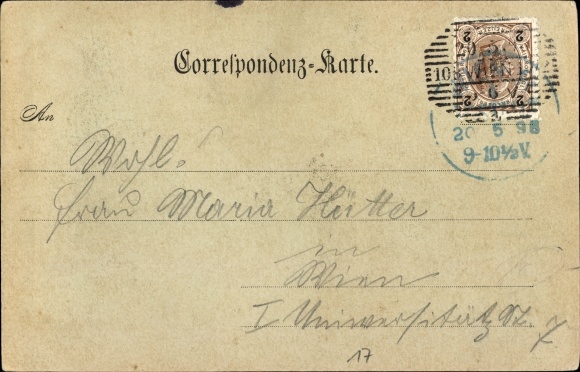 Correspondenz-Karte.
An
Wohl.
Frau Maria Hütter
in
Wien
I Universitätsst. 7
17
2 2
2 2
WIEN
20 5 98
9-10½V.